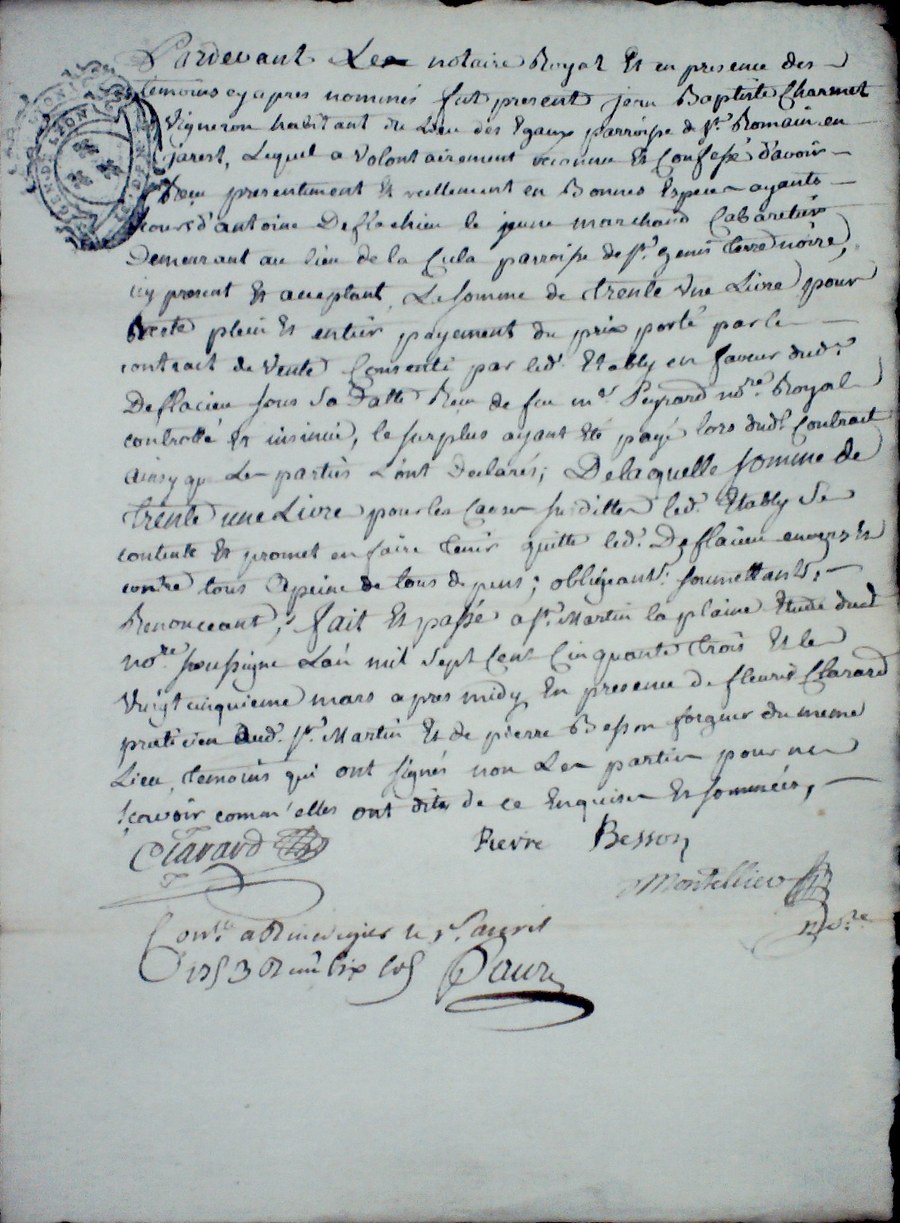 GEN. DE LYON
Pardevant Le notaire Royal Et en presence des
temoins cy apres nommés fut present jean Baptiste Charmet
Vigneron habitant du Lieu des Egaux parroisse de St. Romain en
jarest, Lequel a volontairement reconnu Et Confessé d'avoir
Reçu presentement Et reellement en Bonnes Especes ayants
cours d'antoine Deflachieu le jeune marchand Cabaretier
Demeurant au lieu de la Cula parroisse de St. genis terre noire,
icy present Et acceptant, La somme de trente une Livre pour
Reste plein Et entier payement du prix porté par le
contract de Vente Consenti par led. Etably en faveur dud.
Deflacieu sous sa Datte Reçu de feu me. Peyrard nore. Royal
controllé Et insinué, le surplus ayant Eté payé lors dud. Contract
ainsy que Les parties L'ont Declarés; De laquelle somme de
trente une Livre pour les Causes susdittes led. Etably se
contente Et promet en faire tenir quitte led. Deflacieu envers Et
contre tous apeine de tous depens; obligeant. soumettants,
Renonceant, fait Et passé a St. Martin la plaine Etude dud
nore. soussigné L'an mil sept Cent Cinquante trois Et le
Vingt cinquieme mars apres midy En presence de fleurie Clarard
praticien dud. St. Martin Et de pierre Besson forgeur du meme
Lieu, temoins qui ont signés non Les parties pour ne
sçavoir comm'elles ont dites de ce Enquises Et sommées,
Clarard
Pierre Besson
Montellier
nore.
Conlle a Rivedegier le 1r. avril
1753 R six sols